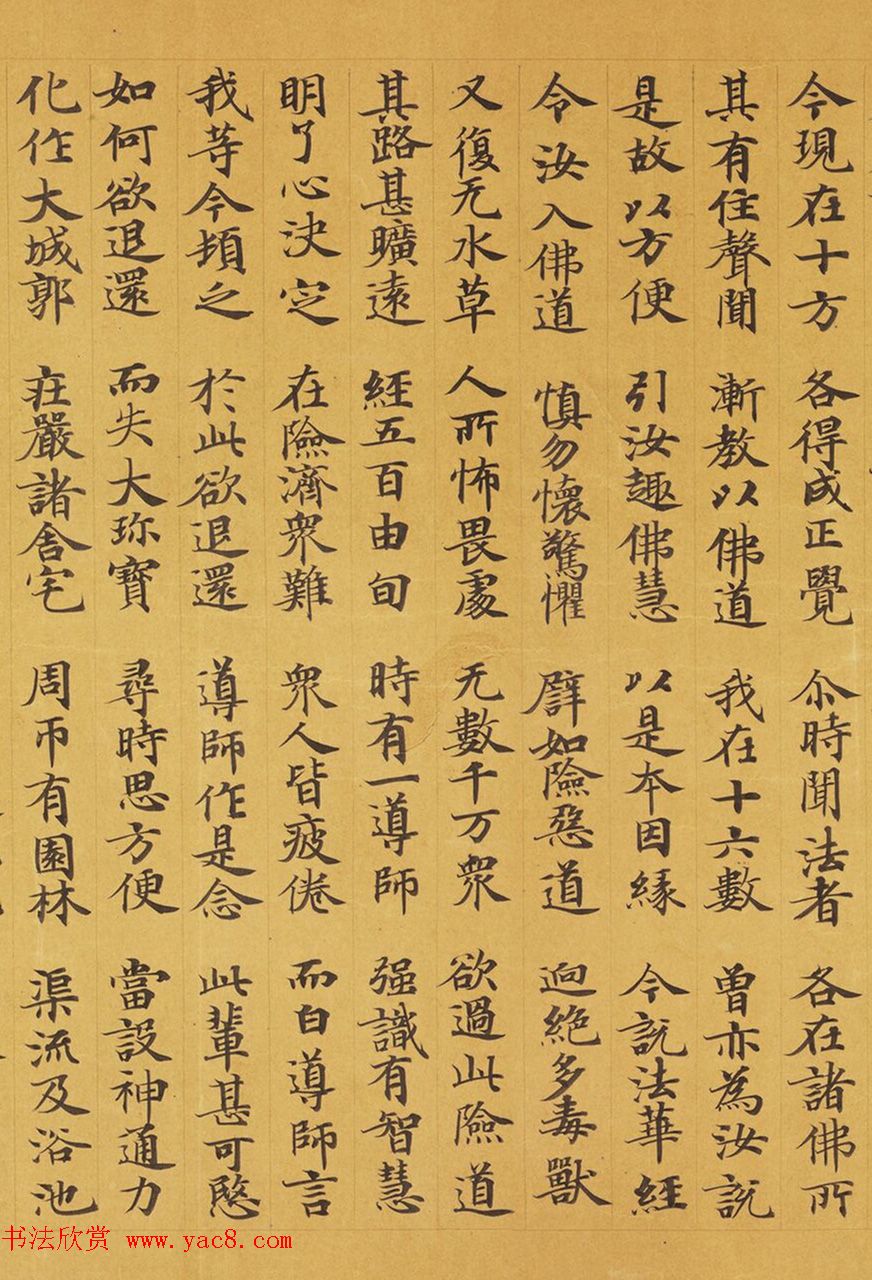 今現在十方 各得成正覺 尒時聞法者 各在諸佛所
其有住聲聞 漸教以佛道 我在十六數 曾亦為汝說
是故以方便 引汝趣佛慧 以是本因緣 今說法華經
令汝入佛道 慎勿懷驚懼 譬如險惡道 迥絕多毒獸
又復无水草 人所怖畏處 无數千万眾 欲過此險道
其路甚曠遠 經五百由旬 時有一導師 强識有智慧
明了心決定 在險濟眾難 眾人皆疲倦 而白導師言
我等今頓乏 於此欲退還 導師作是念 此輩甚可愍
如何欲退還 而失大珎寶 尋時思方便 當設神通力
化作大城郭 莊嚴諸舍宅 周帀有園林 渠流及浴池
书法欣赏 www.yac8.com